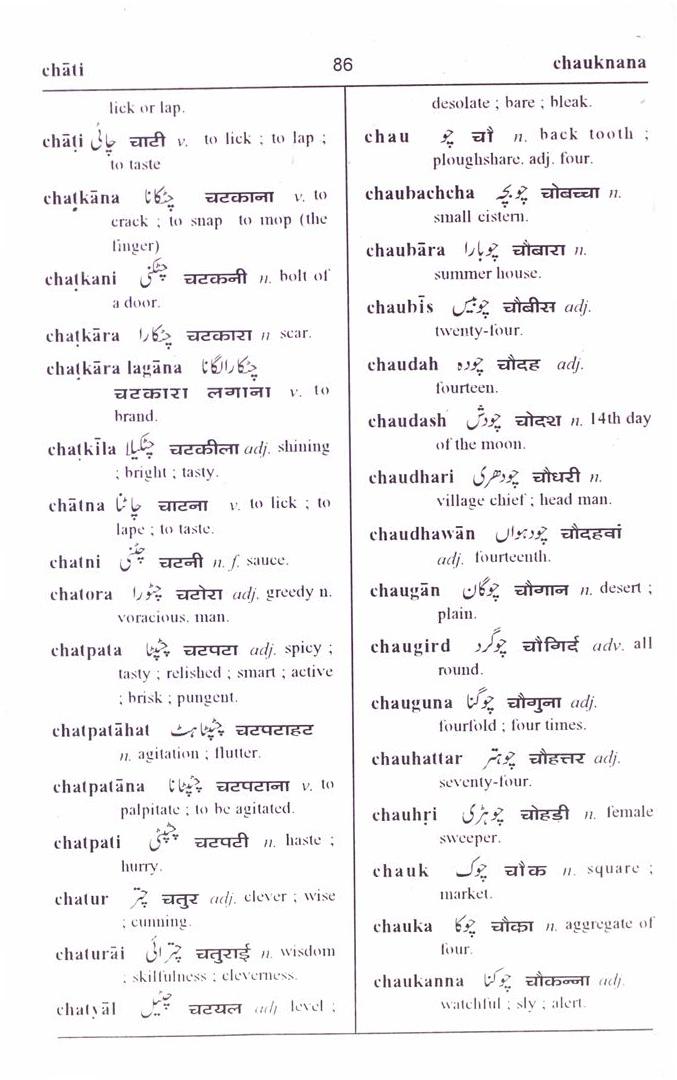 chāti 86 chauknana
lick or lap.
chāṭi چاٹی चाटी v. to lick ; to lap ;
to taste
chaṭkāna چٹکانا चटकाना v. to
crack ; to snap to mop (the
finger)
chaṭkani چٹکنی चटकनी n. bolt of
a door.
chaṭkāra چٹکارا चटकारा n scar.
chaṭkāra lagāna چٹکارا لگانا
चटकारा लगाना v. to
brand.
chaṭkīla چٹکیلا चटकीला adj. shining
; bright ; tasty.
chātna چاٹنا चाटना v. to lick ; to
lape ; to taste.
chatni چٹنی चटनी n. f. sauce.
chatora چٹورا चटोरा adj. greedy n.
voracious. man.
chatpata چٹپٹا चटपटा adj. spicy ;
tasty ; relished ; smart ; active
; brisk ; pungent.
chatpatāhat چٹپٹاہٹ चटपटाहट
n. agitation ; flutter.
chatpatāna چٹپٹانا चटपटाना v. to
palpitate ; to be agitated.
chatpati چٹپٹی चटपटी n. haste ;
hurry.
chatur چتر चतुर adj. clever ; wise
; cunning.
chaturāi چترائی चतुराई n. wisdom
; skilfulness ; cleverness.
chatyāl چٹیل चटयल adj level ;
desolate ; bare ; bleak.
chau چو चौ n. back tooth ;
ploughshare. adj. four.
chaubachcha چوبچہ चोबच्चा n.
small cistern.
chaubāra چوبارا चौबारा n.
summer house.
chaubīs چوبیس चौबीस adj.
twenty-four.
chaudah چودہ चौदह adj.
fourteen.
chaudash چودش चोदश n. 14th day
of the moon.
chaudhari چودھری चौधरी n.
village chief ; head man.
chaudhawān چودہواں चौदहवां
adj. fourteenth.
chaugān چوگان चौगान n. desert ;
plain.
chaugird چوگرد चौगिर्द adv. all
round.
chauguna چوگنا चौगुना adj.
fourfold ; four times.
chauhattar چوہتر चौहत्तर adj.
seventy-four.
chauhṛi چوہڑی चोहडी n. female
sweeper.
chauk چوک चौक n. square ;
market.
chauka چوکا चौका n. aggregate of
four.
chaukanna چوکنا चौकन्ना adj.
watchful ; sly ; alert.